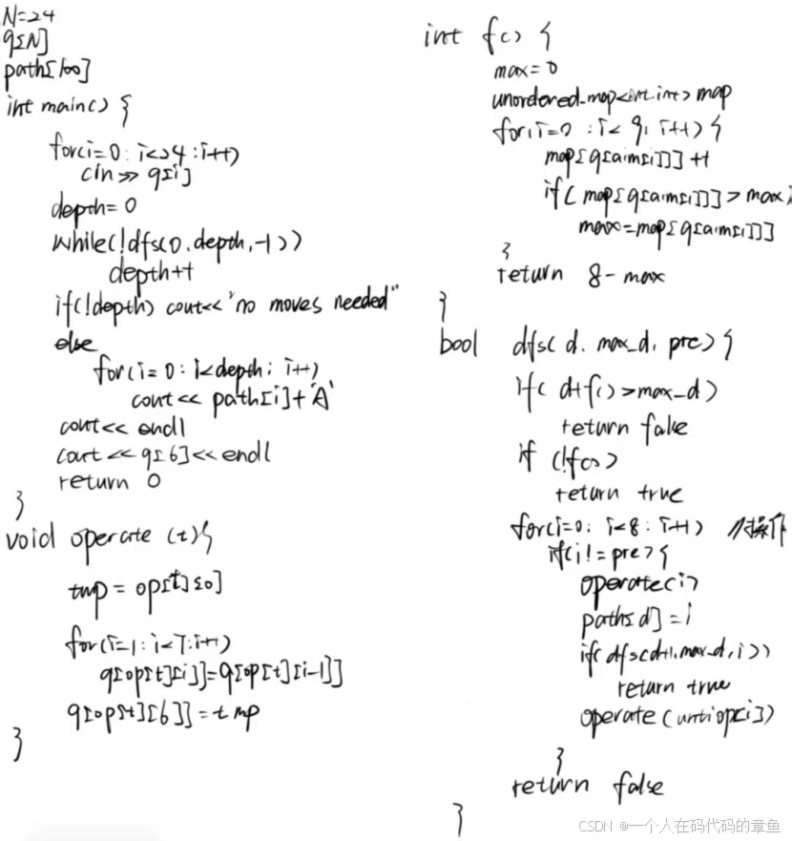 N=24
q[N]
path[100]
int main() {
for(i=0; i<24; i++)
cin >> q[i]
depth=0
while(!dfs(0,depth,-1))
depth++
if(!depth) cout<<"no moves needed"
else
for(i=0; i<depth; i++)
cout << path[i]+'A'
cout<< endl
cout << q[6]<<endl
return 0
}
void operate (t){
tmp = op[t][0]
for(i=1; i<7; i++)
q[op[t][i]]=q[op[t][i-1]]
q[op[t][6]]=tmp
}
int f() {
max=0
unordered_map<int,int> map
for(i=0; i<9; i++) {
map[q[aim[i]]]++
if( map[q[aim[i]]]>max)
max=map[q[aim[i]]]
}
return 8-max
}
bool dfs( d, max_d, pre){
if( d+f()>max_d)
return false
if (!f())
return true
for(i=0; i<8; i++) //操作
if(i!=pre){
operate(i)
path[d]=i
if(dfs(d+1,max_d,i))
return true
operate(untiop[i])
}
return false
}
CSDN @一个人在码代码的章鱼